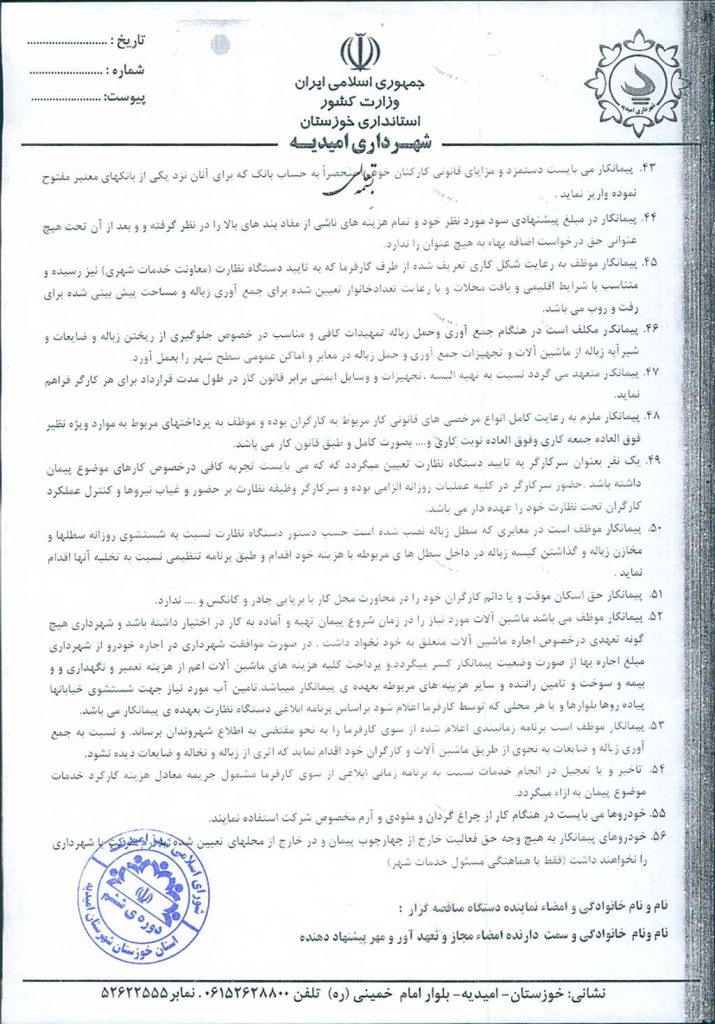 تاریخ : ............................
شماره : .........................
پیوست: ........................
جمهوری اسلامی ایران
وزارت کشور
استانداری خوزستان
شهرداری امیدیه
شهرداری امیدیه
بسمه تعالی
۴۳. پیمانکار می بایست دستمزد و مزایای قانونی کارکنان خود را منحصراً به حساب بانک که برای آنان نزد یکی از بانکهای معتبر مفتوح
نموده واریز نماید .
۴۴. پیمانکار در مبلغ پیشنهادی سود مورد نظر خود و تمام هزینه های ناشی از مفاد بند های بالا را در نظر گرفته و و بعد از آن تحت هیچ
عنوانی حق درخواست اضافه بهاء به هیچ عنوان را ندارد.
۴۵. پیمانکار موظف به رعایت شکل کاری تعریف شده از طرف کارفرما که به تایید دستگاه نظارت (معاونت خدمات شهری) نیز رسیده و
متناسب با شرایط اقلیمی و بافت محلات و با رعایت تعدادخانوار تعیین شده برای جمع آوری زباله و مساحت پیش بینی شده برای
رفت و روب می باشد.
۴۶. پیمانکار مکلف است در هنگام جمع آوری وحمل زباله تمهیدات کافی و مناسب در خصوص جلوگیری از ریختن زباله و ضایعات و
شیرآبه زباله از ماشین آلات و تجهیزات جمع آوری و حمل زباله در معابر و اماکن عمومی سطح شهر را بعمل آورد.
۴۷. پیمانکار متعهد می گردد نسبت به تهیه البسه ،تجهیزات و وسایل ایمنی برابر قانون کار در طول مدت قرارداد برای هر کارگر فراهم
نماید.
۴۸. پیمانکار ملزم به رعایت کامل انواع مرخصی های قانونی کار مربوط به کارگران بوده و موظف به پرداختهای مربوط به موارد ویژه نظیر
فوق العاده جمعه کاری وفوق العاده نوبت کاری و.... بصورت کامل و طبق قانون کار می باشد.
۴۹. یک نفر بعنوان سرکارگر به تایید دستگاه نظارت تعیین میگردد که که می بایست تجربه کافی درخصوص کارهای موضوع پیمان
داشته باشد .حضور سرکارگر در کلیه عملیات روزانه الزامی بوده و سرکارگر وظیفه نظارت بر حضور و غیاب نیروها و کنترل عملکرد
کارگران تحت نظارت خود را عهده دار می باشد.
۵۰. پیمانکار موظف است در معابری که سطل زباله نصب شده است حسب دستور دستگاه نظارت نسبت به شستشوی روزانه سطلها و
مخازن زباله و گذاشتن کیسه زباله در داخل سطل ها ی مربوطه با هزینه خود اقدام و طبق برنامه تنظیمی نسبت به تخلیه آنها اقدام
نماید .
۵۱. پیمانکار حق اسکان موقت و یا دائم کارگران خود را در مجاورت محل کار با برپایی چادر و کانکس و .... ندارد.
۵۲. پیمانکار موظف می باشد ماشین آلات مورد نیاز را در زمان شروع پیمان تهیه و آماده به کار در اختیار داشته باشد و شهرداری هیچ
گونه تعهدی درخصوص اجاره ماشین آلات متعلق به خود نخواد داشت . در صورت موافقت شهرداری در اجاره خودرو از شهرداری
مبلغ اجاره بها از صورت وضعیت پیمانکار کسر میگردد.و پرداخت کلیه هزینه های ماشین آلات اعم از هزینه تعمیر و نگهداری و و
بیمه و سوخت و تامین راننده و سایر هزینه های مربوطه بعهده ی پیمانکار میباشد.تامین آب مورد نیاز جهت شستشوی خیابانها
پیاده روها بلوارها و یا هر محلی که توسط کارفرما اعلام شود براساس برنامه ابلاغی دستگاه نظارت بعهده ی پیمانکار می باشد.
۵۳. پیمانکار موظف است برنامه زمانبندی اعلام شده از سوی کارفرما را به نحو مقتضی به اطلاع شهروندان برساند. و نسبت به جمع
آوری زباله و ضایعات به نحوی از طریق ماشین آلات و کارگران خود اقدام نماید که اثری از زباله و نخاله و ضایعات دیده نشود.
۵۴. تاخیر و یا تعجیل در انجام خدمات نسبت به برنامه زمانی ابلاغی از سوی کارفرما مشمول جریمه معادل هزینه کارکرد خدمات
موضوع پیمان به ازاء میگردد.
۵۵. خودروها می بایست در هنگام کار از چراغ گردان و ملودی و آرم مخصوص شرکت استفاده نمایند.
۵۶. خودروهای پیمانکار به هیچ وجه حق فعالیت خارج از چهارچوب پیمان و در خارج از محلهای تعیین شده شهرداری
را نخواهند داشت (فقط با هماهنگی مسئول خدمات شهر)
شورای اسلامی شهر امیدیه
دوره ی ششم
استان خوزستان شهرستان امیدیه
نام و نام خانوادگی و امضاء نماینده دستگاه مناقصه گزار :
نام ونام خانوادگی و سمت دارنده امضاء مجاز و تعهد آور و مهر پیشنهاد دهنده
نشانی: خوزستان- امیدیه- بلوار امام خمینی (ره) تلفن ۰۶۱۵۲۶۲۸۸۰۰ . نمابر ۵۲۶۲۲۵۵۵